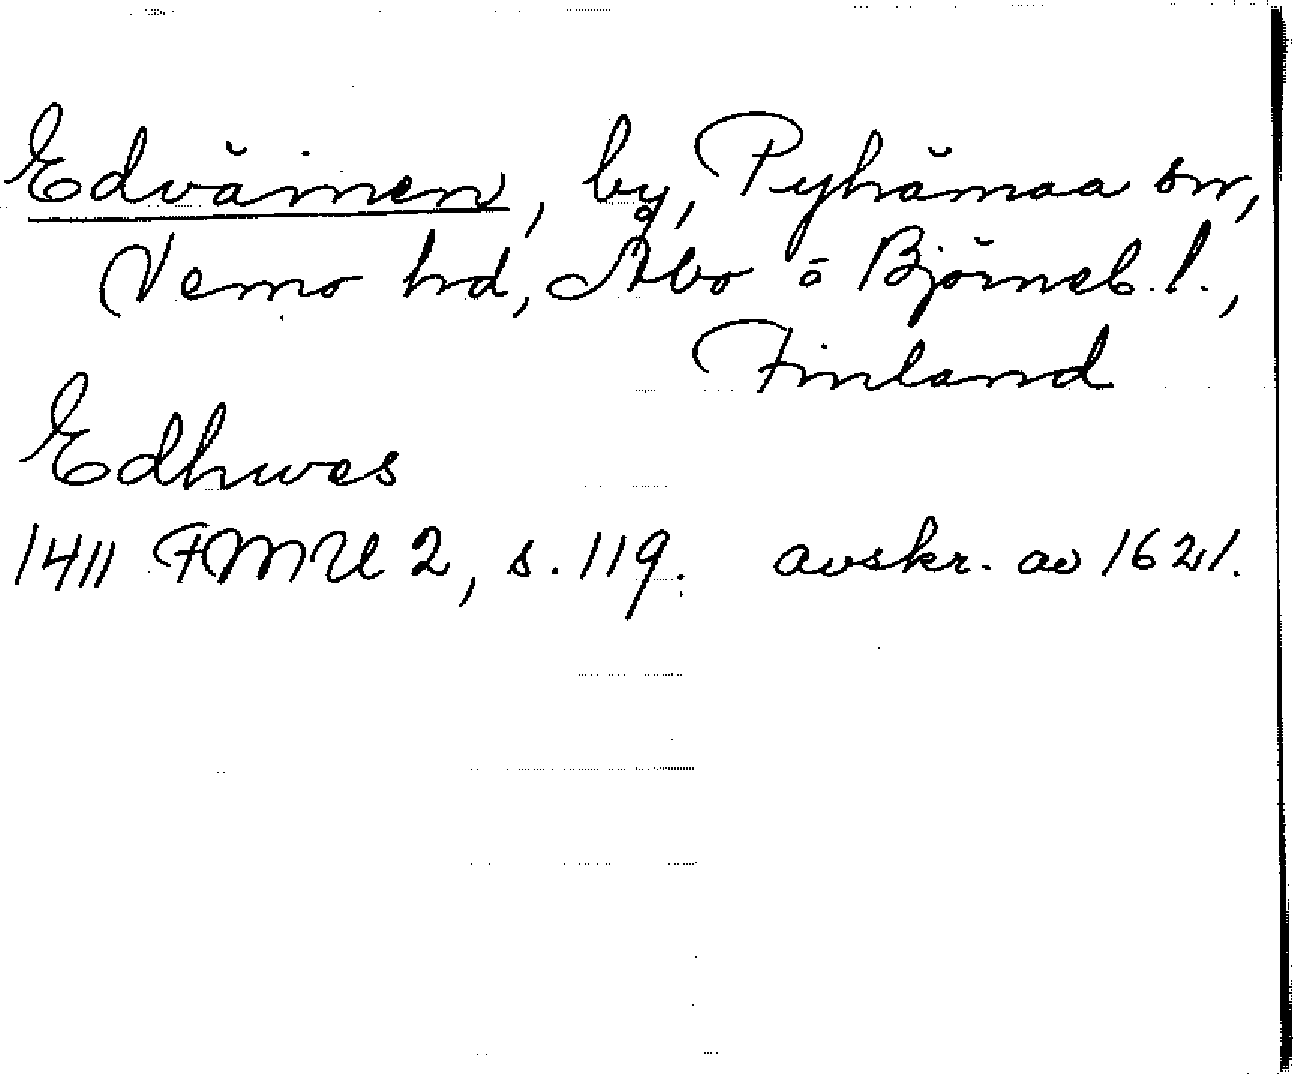 Edväinen, by, Pyhämaa sn,
Vemo hd, Åbo o Björneb. l.,
Finland
Edhwes
1411 FMU 2, s. 119. avskr. av 1621.